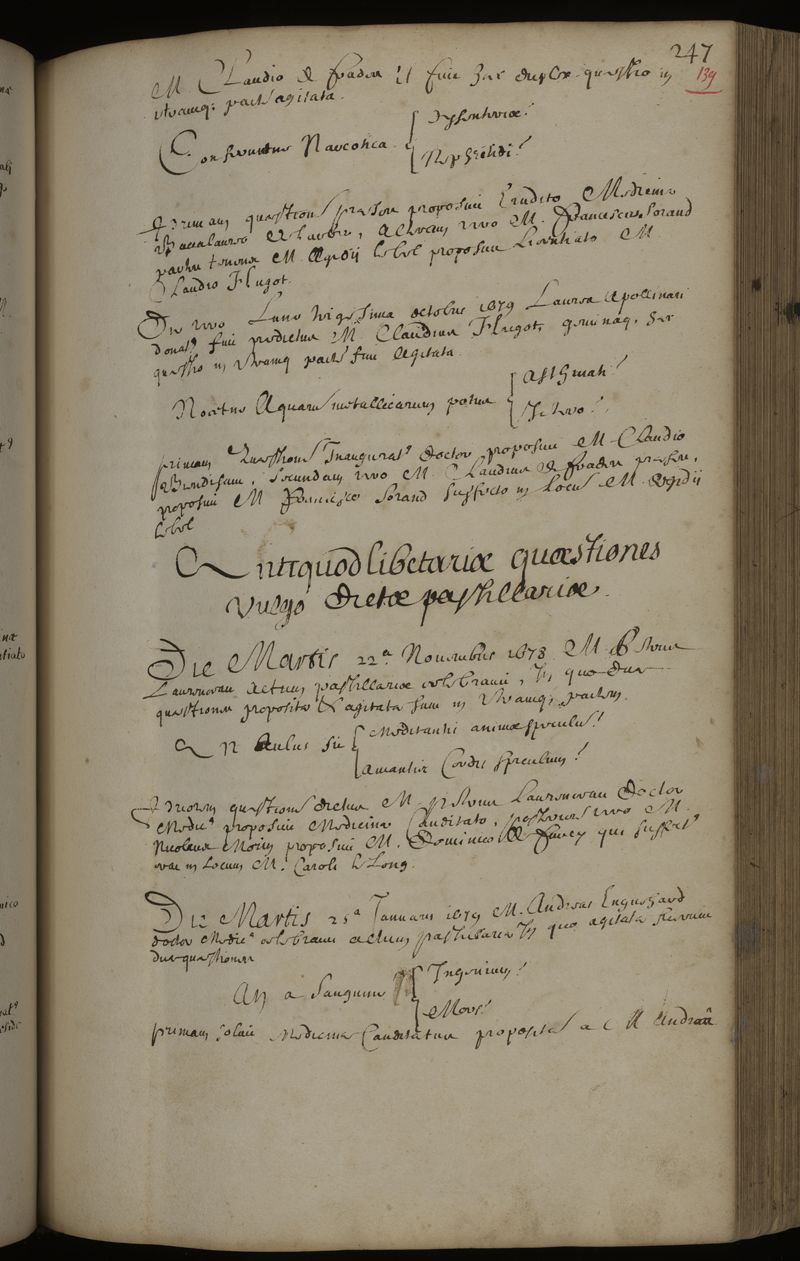 247
139
M Claudio de fradin Et fuit hæc duplex quæstio in
utramq; partem agitata.
Conveniuntne Narcotica
Dysenteriæ?
Nephritidi?
Primam quæstionem præses proposuit Erudito Medicinæ
Baccalaureo alteram vero M. Franciscus Lorand
M. Ægidii lebel proposuit Licentiato M.
Claudio Flugot.
Die vero Lunæ octobris 1679 Laurea Apollinari
donatus fuit prædictus M. Claudius Flugot, hæc
quæstio in utramq; partem fuit agitata.
Nocetne Aquarum metallicarum potus
Asthmati?
Ictero?
primam Quæstionem Inauguratus doctor proposuit M. Claudio
secundam vero M. Claudius de fradin præses,
proposuit M Francisco Lorand suffecto in Locum M. Ægidii
lebel
Antiquodlibetariæ quæstiones
vulgo dictæ pastillariæ.
Die Martis 22ª Novembris 1678 M.
actum pastillariæ celebravit, In quo duæ
quæstiones propositæ & agitatæ sunt in utramq; partem.
An oculus sit
Meditantis animæ speculum?
Amantis Cordis speculum?
Priorem quæstionem dictus M. doctor
Medicus proposuit Medicinæ Canditato, posteriorem vero M.
Nicolaus Morin proposuit M. Dominico de Furcy qui suffectus
erat in Locum M. Caroli le Long.
Die Martis 25ª Januarii 1679 M. Andreas Enguehard
doctor Medicus celebravit actum pastillariæ In quo agitatæ fuerunt
duæ quæstiones
An a sanguine
Ingenium?
Mores?
primam solvit Medicinæ Canditatus propositam a M Andrea